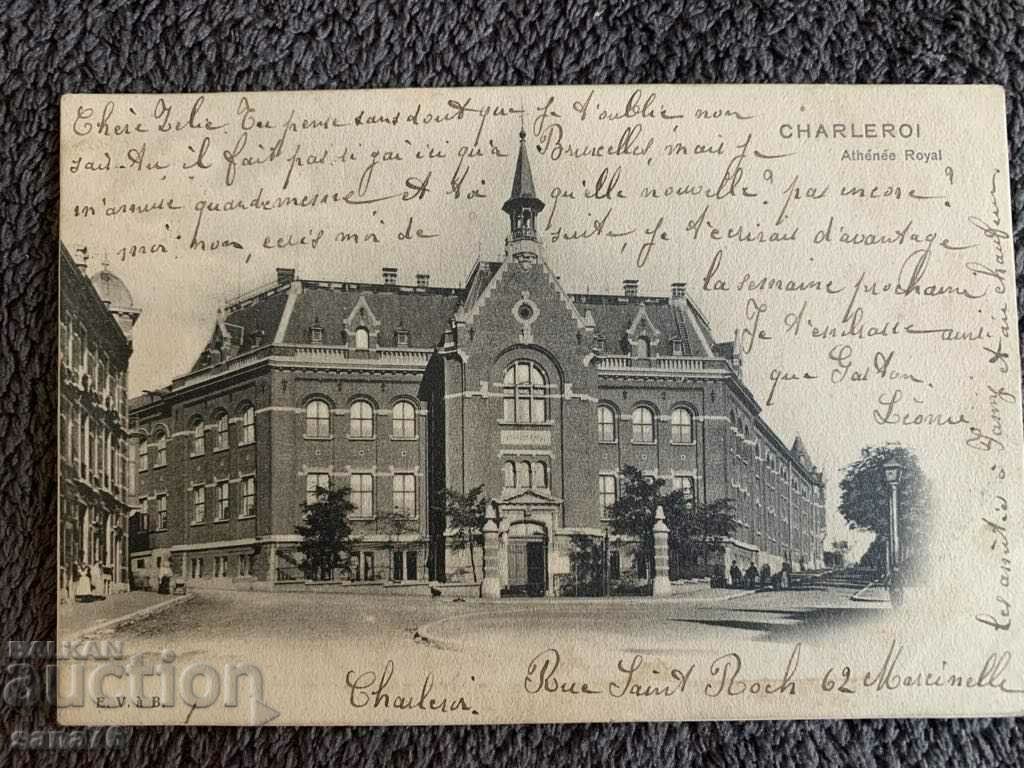 Cherè Zelie. Tu pense sans dout que je t'oublie non
CHARLEROI
Athénée Royal
sais-tu, il fait pas si gai ici qu'a Bruxelles, mais je
m'amuse quandemesme et toi qu'elle nouvelle? pas encore?
moi non, ecris moi de suite, je t'ecrirais d'avantage
la semaine prochaine
Je t'embrasse ainsi
que Gaston.
Léonie
Les amitié à Fanny et au chauffeur
Charleroi. Rue Saint Roch 62 Marcinelle
E. V. à B.
BALKAN
auction
sana76